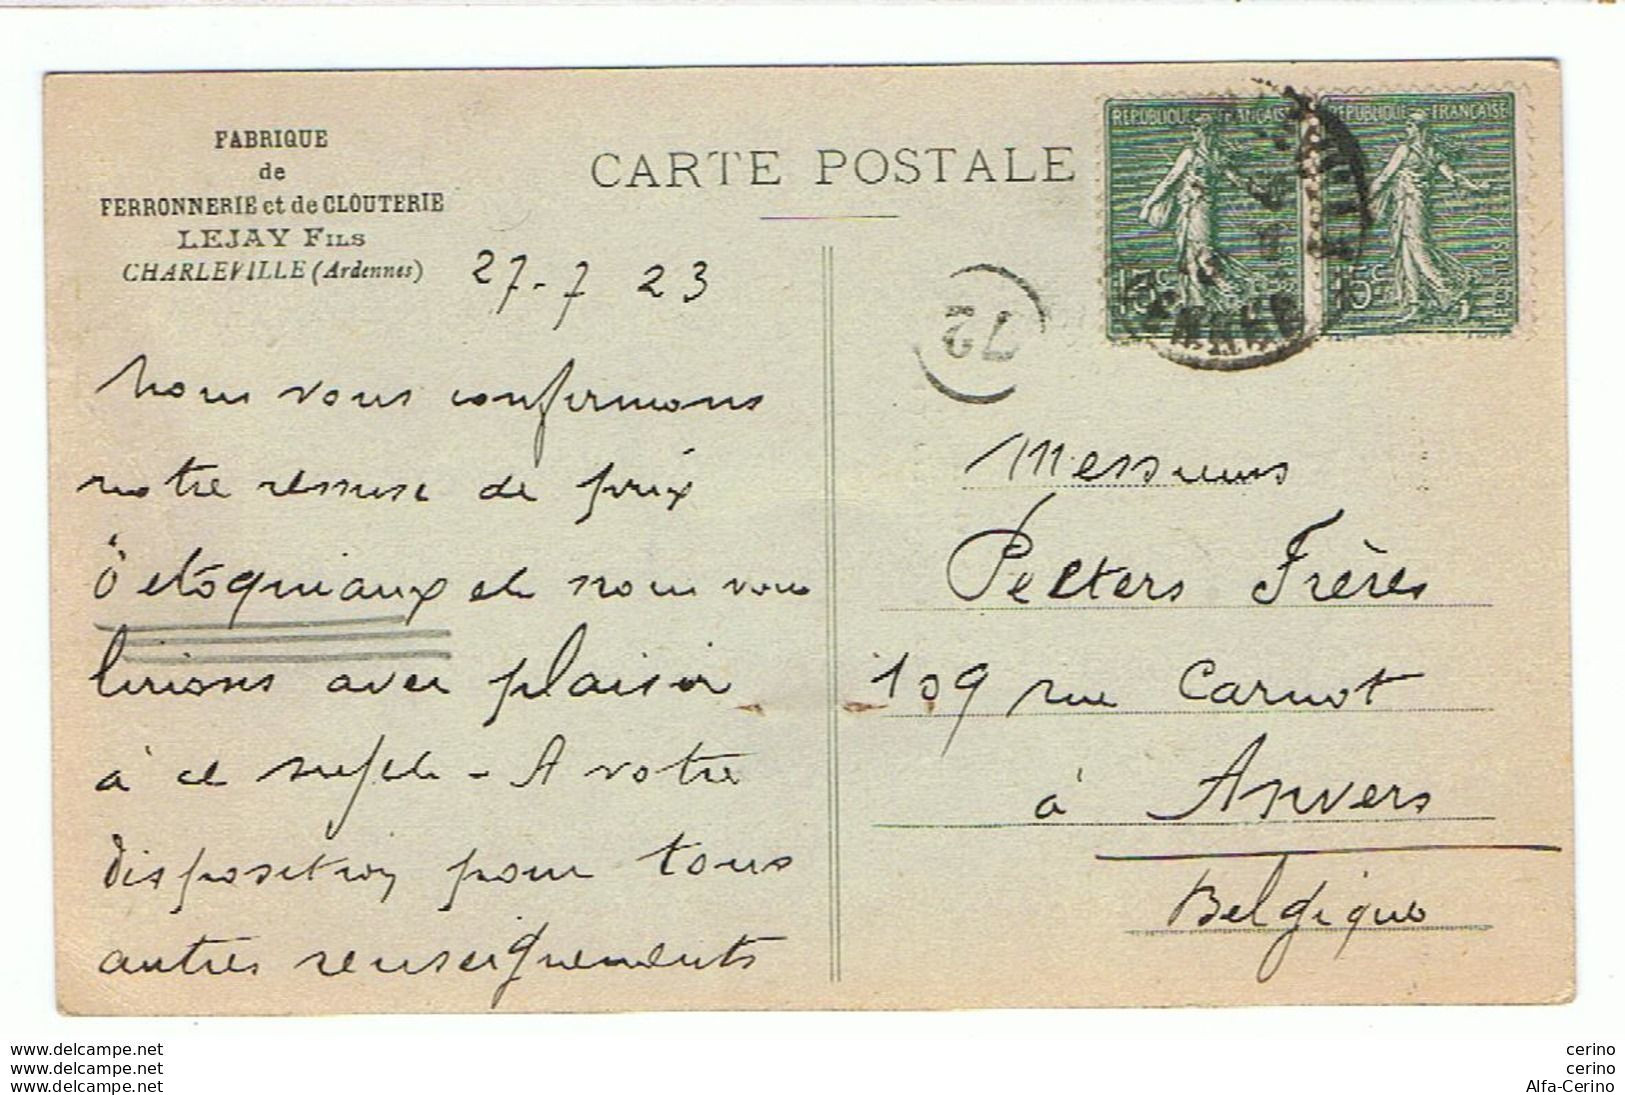 FABRIQUE
de
FERRONNERIE et de CLOUTERIE
LEJAY FILS
CHARLEVILLE (Ardennes)
CARTE POSTALE
REPUBLIQUE FRANÇAISE
15c
REPUBLIQUE FRANÇAISE
15c
POSTES
27-7 23
72
Nous vous confirmons
notre remise de prix
et nous vous
lirions avec plaisir
à ce sujet - A votre
disposition pour tous
autres renseignements
Messieurs
Peeters Frères
109 rue Carnot
à Anvers
Belgique
www.delcampe.net
www.delcampe.net
www.delcampe.net
cerino
cerino
Alfa-Cerino